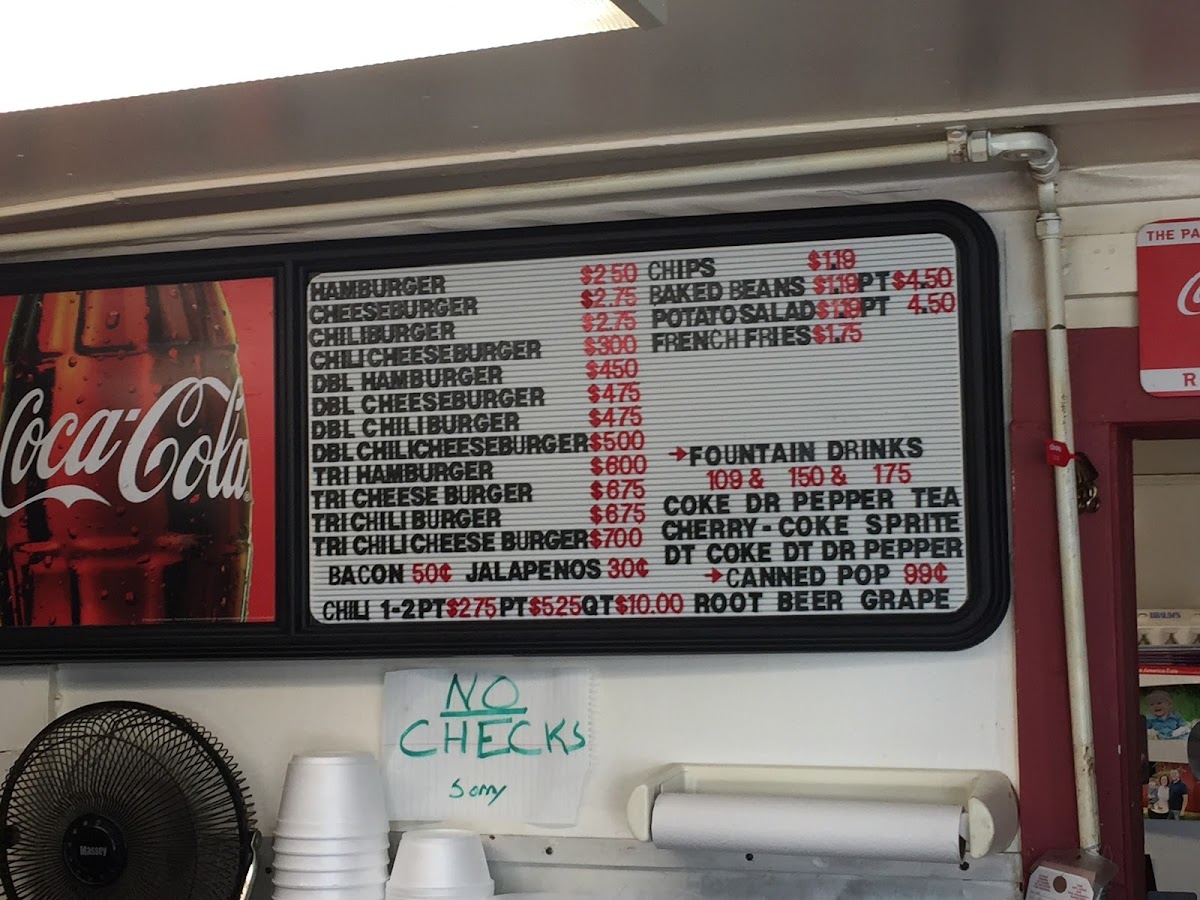 Coca-Cola
HAMBURGER $2.50
CHEESEBURGER $2.75
CHILIBURGER $2.75
CHILICHEESEBURGER $300
DBL HAMBURGER $450
DBL CHEESEBURGER $475
DBL CHILIBURGER $475
DBL CHILICHEESEBURGER $500
TRI HAMBURGER $600
TRI CHEESE BURGER $675
TRI CHILI BURGER $675
TRI CHILI CHEESE BURGER $700
BACON 50¢ JALAPENOS 30¢
CHILI 1-2PT $2.75 PT $5.25 QT $10.00
CHIPS $1.19
BAKED BEANS $1.19 PT $4.50
POTATO SALAD $1.19 PT 4.50
FRENCH FRIES $1.75
→FOUNTAIN DRINKS
109 & 150 & 175
COKE DR PEPPER TEA
CHERRY-COKE SPRITE
DT COKE DT DR PEPPER
→CANNED POP 99¢
ROOT BEER GRAPE
THE PA
R
NO
CHECKS
Sorry
Massey